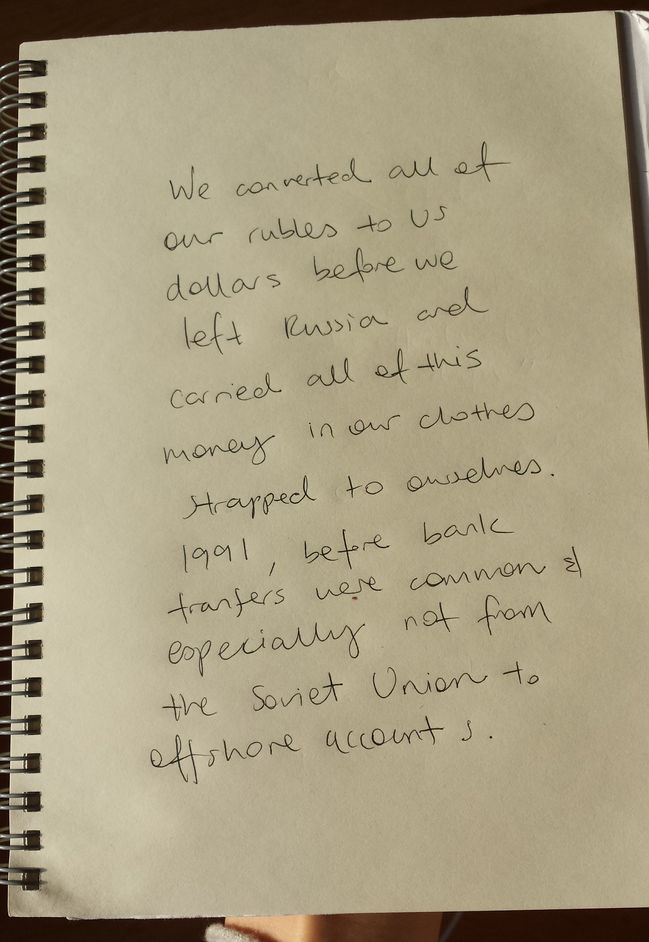 We converted all of
our rubles to US
dollars before we
left Russia and
carried all of this
money in our clothes
strapped to ourselves.
1991, before bank
tranfers were common &
especially not from
the Soviet Union to
offshore accounts.